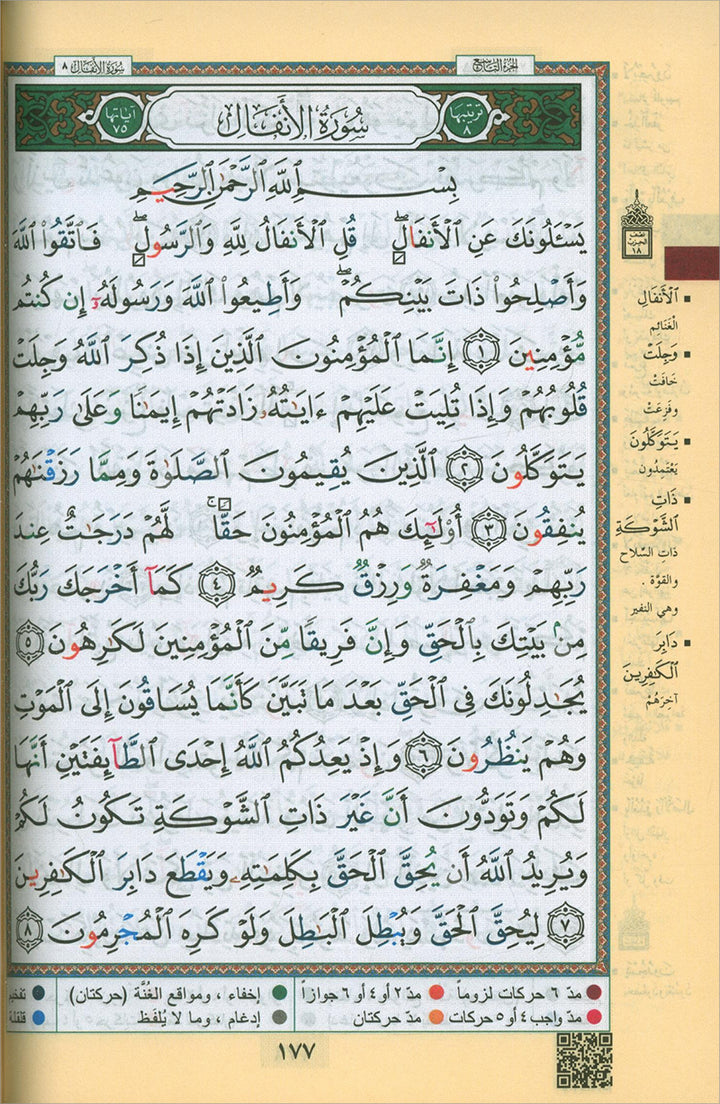 سُورَةُ الأَنفَال ٨
الجزء التاسع
ترتيبها ٨
سُورَةُ الأَنفَالِ
آياتها ٧٥
بِسْمِ ٱللَّهِ ٱلرَّحْمَٰنِ ٱلرَّحِيمِ
يَسْـَٔلُونَكَ عَنِ ٱلْأَنفَالِۖ قُلِ ٱلْأَنفَالُ لِلَّهِ وَٱلرَّسُولِۖ فَٱتَّقُوا۟ ٱللَّهَ
وَأَصْلِحُوا۟ ذَاتَ بَيْنِكُمْۖ وَأَطِيعُوا۟ ٱللَّهَ وَرَسُولَهُۥٓ إِن كُنتُم
مُّؤْمِنِينَ ١ إِنَّمَا ٱلْمُؤْمِنُونَ ٱلَّذِينَ إِذَا ذُكِرَ ٱللَّهُ وَجِلَتْ
قُلُوبُهُمْ وَإِذَا تُلِيَتْ عَلَيْهِمْ ءَايَٰتُهُۥ زَادَتْهُمْ إِيمَٰنًا وَعَلَىٰ رَبِّهِمْ
يَتَوَكَّلُونَ ٢ ٱلَّذِينَ يُقِيمُونَ ٱلصَّلَوٰةَ وَمِمَّا رَزَقْنَٰهُمْ
يُنفِقُونَ ٣ أُو۟لَٰٓئِكَ هُمُ ٱلْمُؤْمِنُونَ حَقًّاۚ لَّهُمْ دَرَجَٰتٌ عِندَ
رَبِّهِمْ وَمَغْفِرَةٌ وَرِزْقٌ كَرِيمٌ ٤ كَمَآ أَخْرَجَكَ رَبُّكَ
مِنۢ بَيْتِكَ بِٱلْحَقِّ وَإِنَّ فَرِيقًا مِّنَ ٱلْمُؤْمِنِينَ لَكَٰرِهُونَ ٥
يُجَٰدِلُونَكَ فِى ٱلْحَقِّ بَعْدَ مَا تَبَيَّنَ كَأَنَّمَا يُسَاقُونَ إِلَى ٱلْمَوْتِ
وَهُمْ يَنظُرُونَ ٦ وَإِذْ يَعِدُكُمُ ٱللَّهُ إِحْدَى ٱلطَّآئِفَتَيْنِ أَنَّهَا
لَكُمْ وَتَوَدُّونَ أَنَّ غَيْرَ ذَاتِ ٱلشَّوْكَةِ تَكُونُ لَكُمْ
وَيُرِيدُ ٱللَّهُ أَن يُحِقَّ ٱلْحَقَّ بِكَلِمَٰتِهِۦ وَيَقْطَعَ دَابِرَ ٱلْكَٰفِرِينَ
٧ لِيُحِقَّ ٱلْحَقَّ وَيُبْطِلَ ٱلْبَٰطِلَ وَلَوْ كَرِهَ ٱلْمُجْرِمُونَ ٨
نصف الحزب ١٨
ٱلْأَنفَالِ
الْغَنَائِمِ
وَجِلَتْ
خَافَتْ
وفَزِعَتْ
يَتَوَكَّلُونَ
يَعْتَمِدُون
ذَاتِ
ٱلشَّوْكَةِ
ذَاتِ السِّلاح
والقوَّة .
وهي النفير
دَابِرَ
ٱلْكَٰفِرِينَ
آخِرَهُمْ
مدّ ٦ حركات لزوماً
مدّ ٢ أو ٤ أو ٦ جوازاً
إخفاء ، ومواقع الغُنَّة (حركتان)
مدّ واجب ٤ أو ٥ حركات
مدّ حركتان
إدغام ، وما لا يُلفَظ
قلقلة
١٧٧